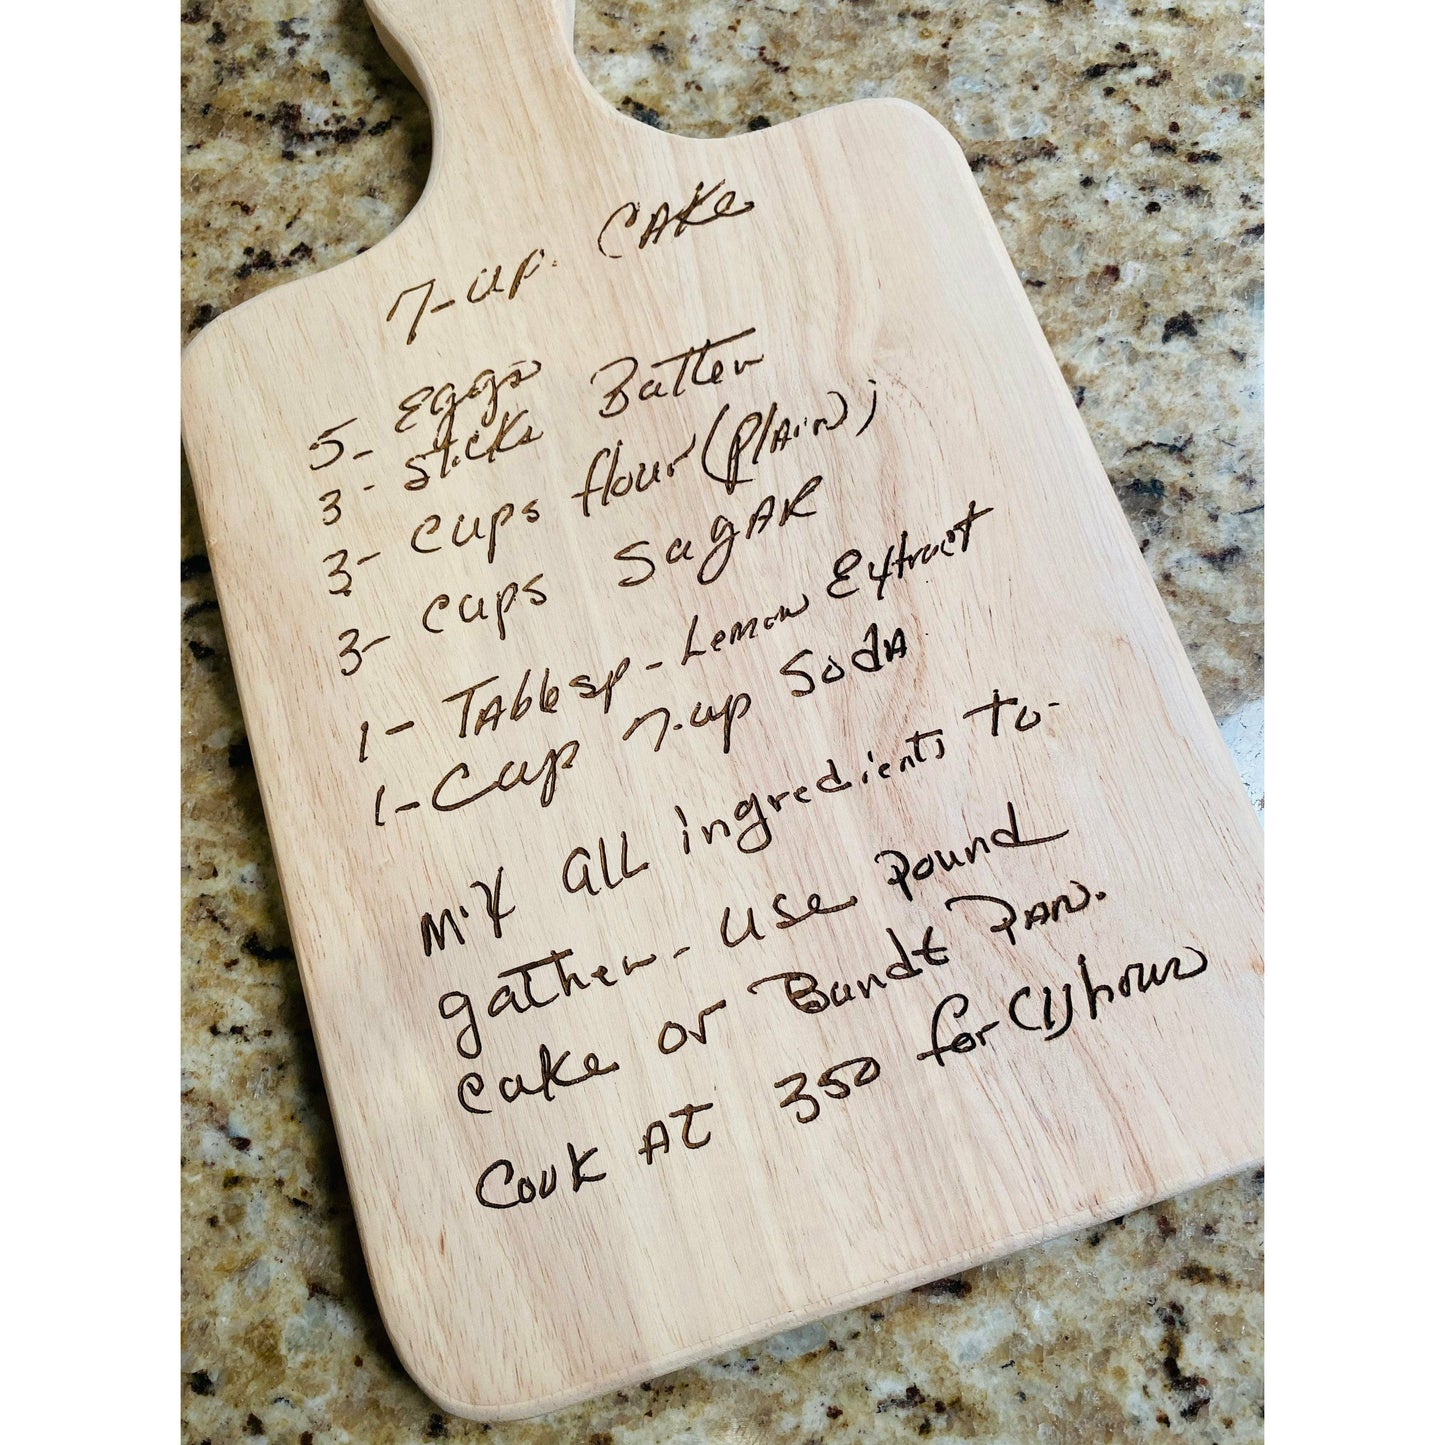 7-up. CAKe
5- Eggs
3- sticks Butter
3- cups flour (plain);
3- cups sugAR
1- TAblesp - Lemon Extract
1- Cup 7-up SodA
mix all ingredients to-
gather - use pound
cake or Bundt PAN.
Cook AT 350 for (1) hour